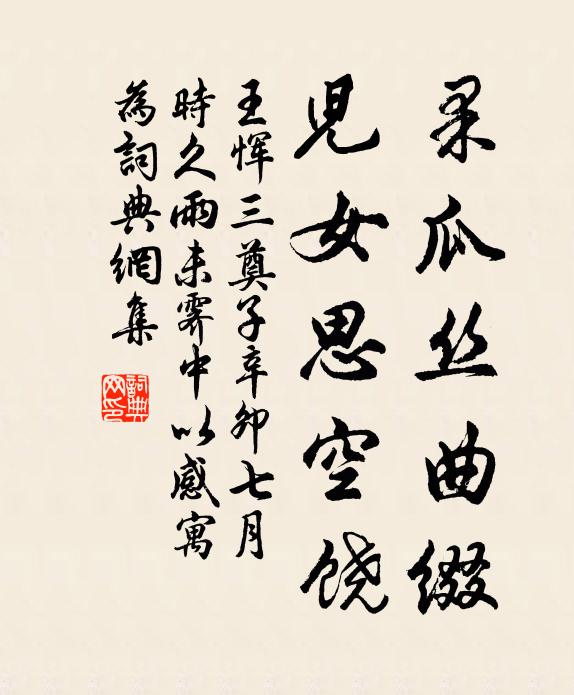 果瓜丝曲缀
兒女思空饶
王恽三奠子辛卯七月
時久雨未霽中以感寓
為詞典網集
詞典网印